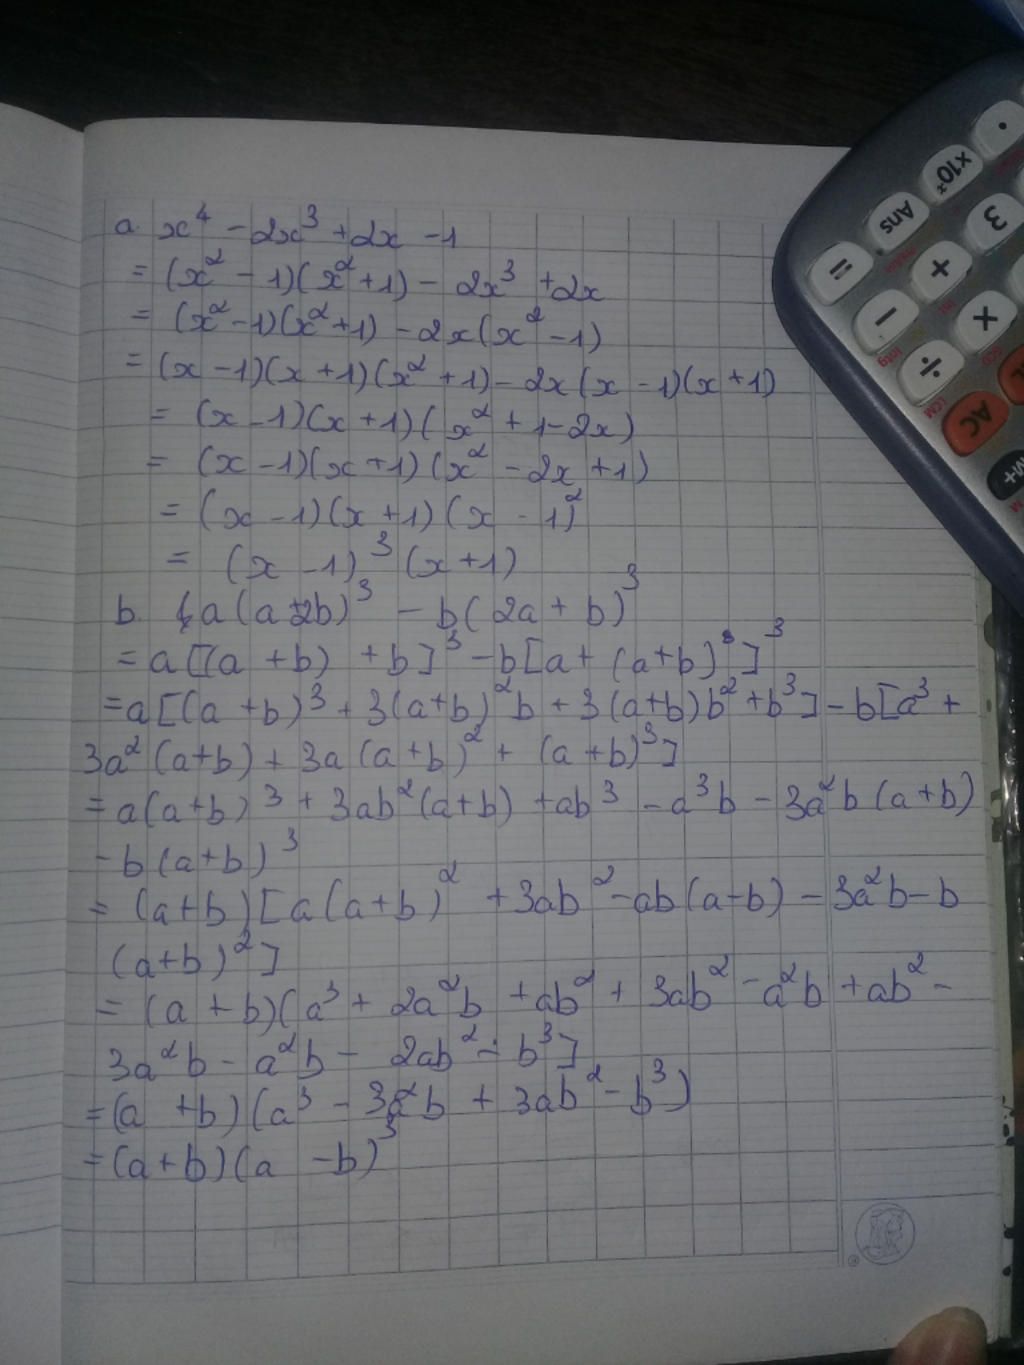 a. x⁴ - 2x³ + 2x - 1
= (x² - 1)(x² + 1) - 2x³ + 2x
= (x² - 1)(x² + 1) - 2x(x² - 1)
= (x - 1)(x + 1)(x² + 1) - 2x(x - 1)(x + 1)
= (x - 1)(x + 1)(x² + 1 - 2x)
= (x - 1)(x + 1)(x² - 2x + 1)
= (x - 1)(x + 1)(x - 1)²
= (x - 1)³(x + 1)
b. a(a + 2b)³ - b(2a + b)³
= a[(a + b) + b]³ - b[a + (a + b)]³
= a[(a + b)³ + 3(a + b)²b + 3(a + b)b² + b³] - b[a³ +
3a²(a + b) + 3a(a + b)² + (a + b)³]
= a(a + b)³ + 3ab²(a + b) + ab³ - a³b - 3a²b(a + b)
- b(a + b)³
= (a + b)[a(a + b)² + 3ab² - ab(a - b) - 3a²b - b
(a + b)²]
= (a + b)(a³ + 2a²b + ab² + 3ab² - a²b + ab² -
3a²b - a²b - 2ab² - b³]
= (a + b)(a³ - 3a²b + 3ab² - b³)
= (a + b)(a - b)³
=
Ans
×10ˣ
3
+
-
×
÷
AC
M+
LCM